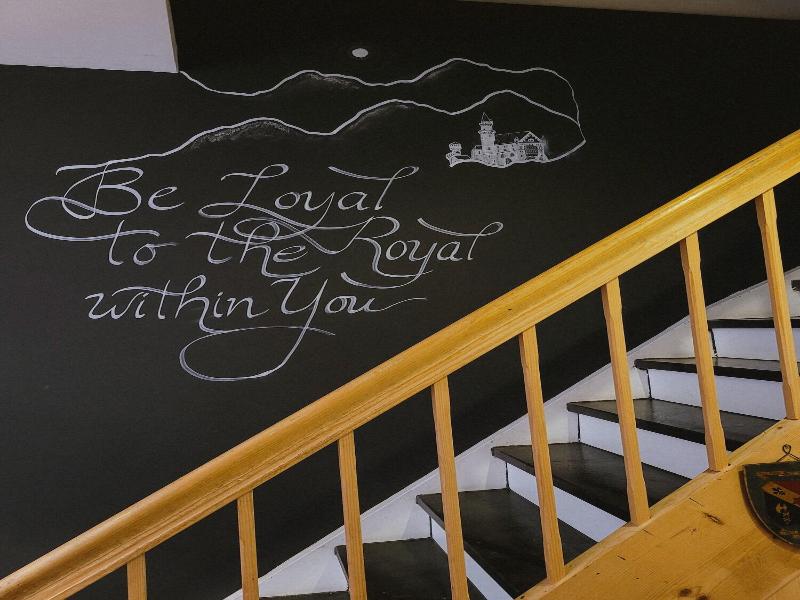 Be Loyal
to the Royal
within You